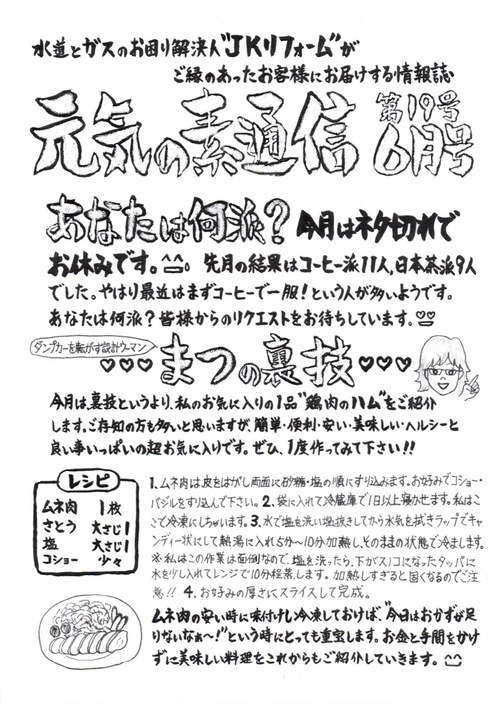 水道とガスのお困り解決人"JKリフォーム"が
ご縁のあったお客様にお届けする情報誌
元気の素通信 第19号 6月号
あなたは何派? 今月はネタ切れで
お休みです。^^。 先月の結果はコーヒー派11人,日本茶派9人
でした。やはり最近はまずコーヒーで一服!という人が多いようです。
あなたは何派?皆様からのリクエストをお待ちしています。
ダンプカーを転がす設計ウーマン
♡♡♡ まつの裏技 ♡♡♡
今月は裏技というより、私のお気に入りの1品"鶏肉のハム"をご紹介
します。ご存知の方も多いと思いますが、簡単・便利・安い・美味しい・ヘルシーと
良い事いっぱいの超お気に入りです。ぜひ、1度作ってみて下さい!!
レシピ
ムネ肉 1枚
さとう 大さじ1
塩 大さじ1
コショー 少々
1、ムネ肉は皮をはがし両面に砂糖・塩の順にすり込みます。お好みでコショー・
バジルをすり込んで下さい。2、袋に入れて冷蔵庫で1日以上寝かせます。私はこ
こで冷凍にしちゃいます。3、水で塩を洗い塩抜きしてから水気を拭きラップでキャ
ンディー状にして熱湯に入れ5分〜10分加熱し、そのままの状態で冷まします。
※私はこの作業は面倒なので、塩を洗ったら、下がスノコになったタッパに
水を少し入れてレンジで10分程蒸します。加熱しすぎると固くなるのでご注
意!! 4、お好みの厚さにスライスして完成。
ムネ肉の安い時に味付けし冷凍しておけば、"今日はおかずが足
りないなぁ〜!"という時にとっても重宝します。お金と手間をかけ
ずに美味しい料理をこれからもご紹介していきます。^^